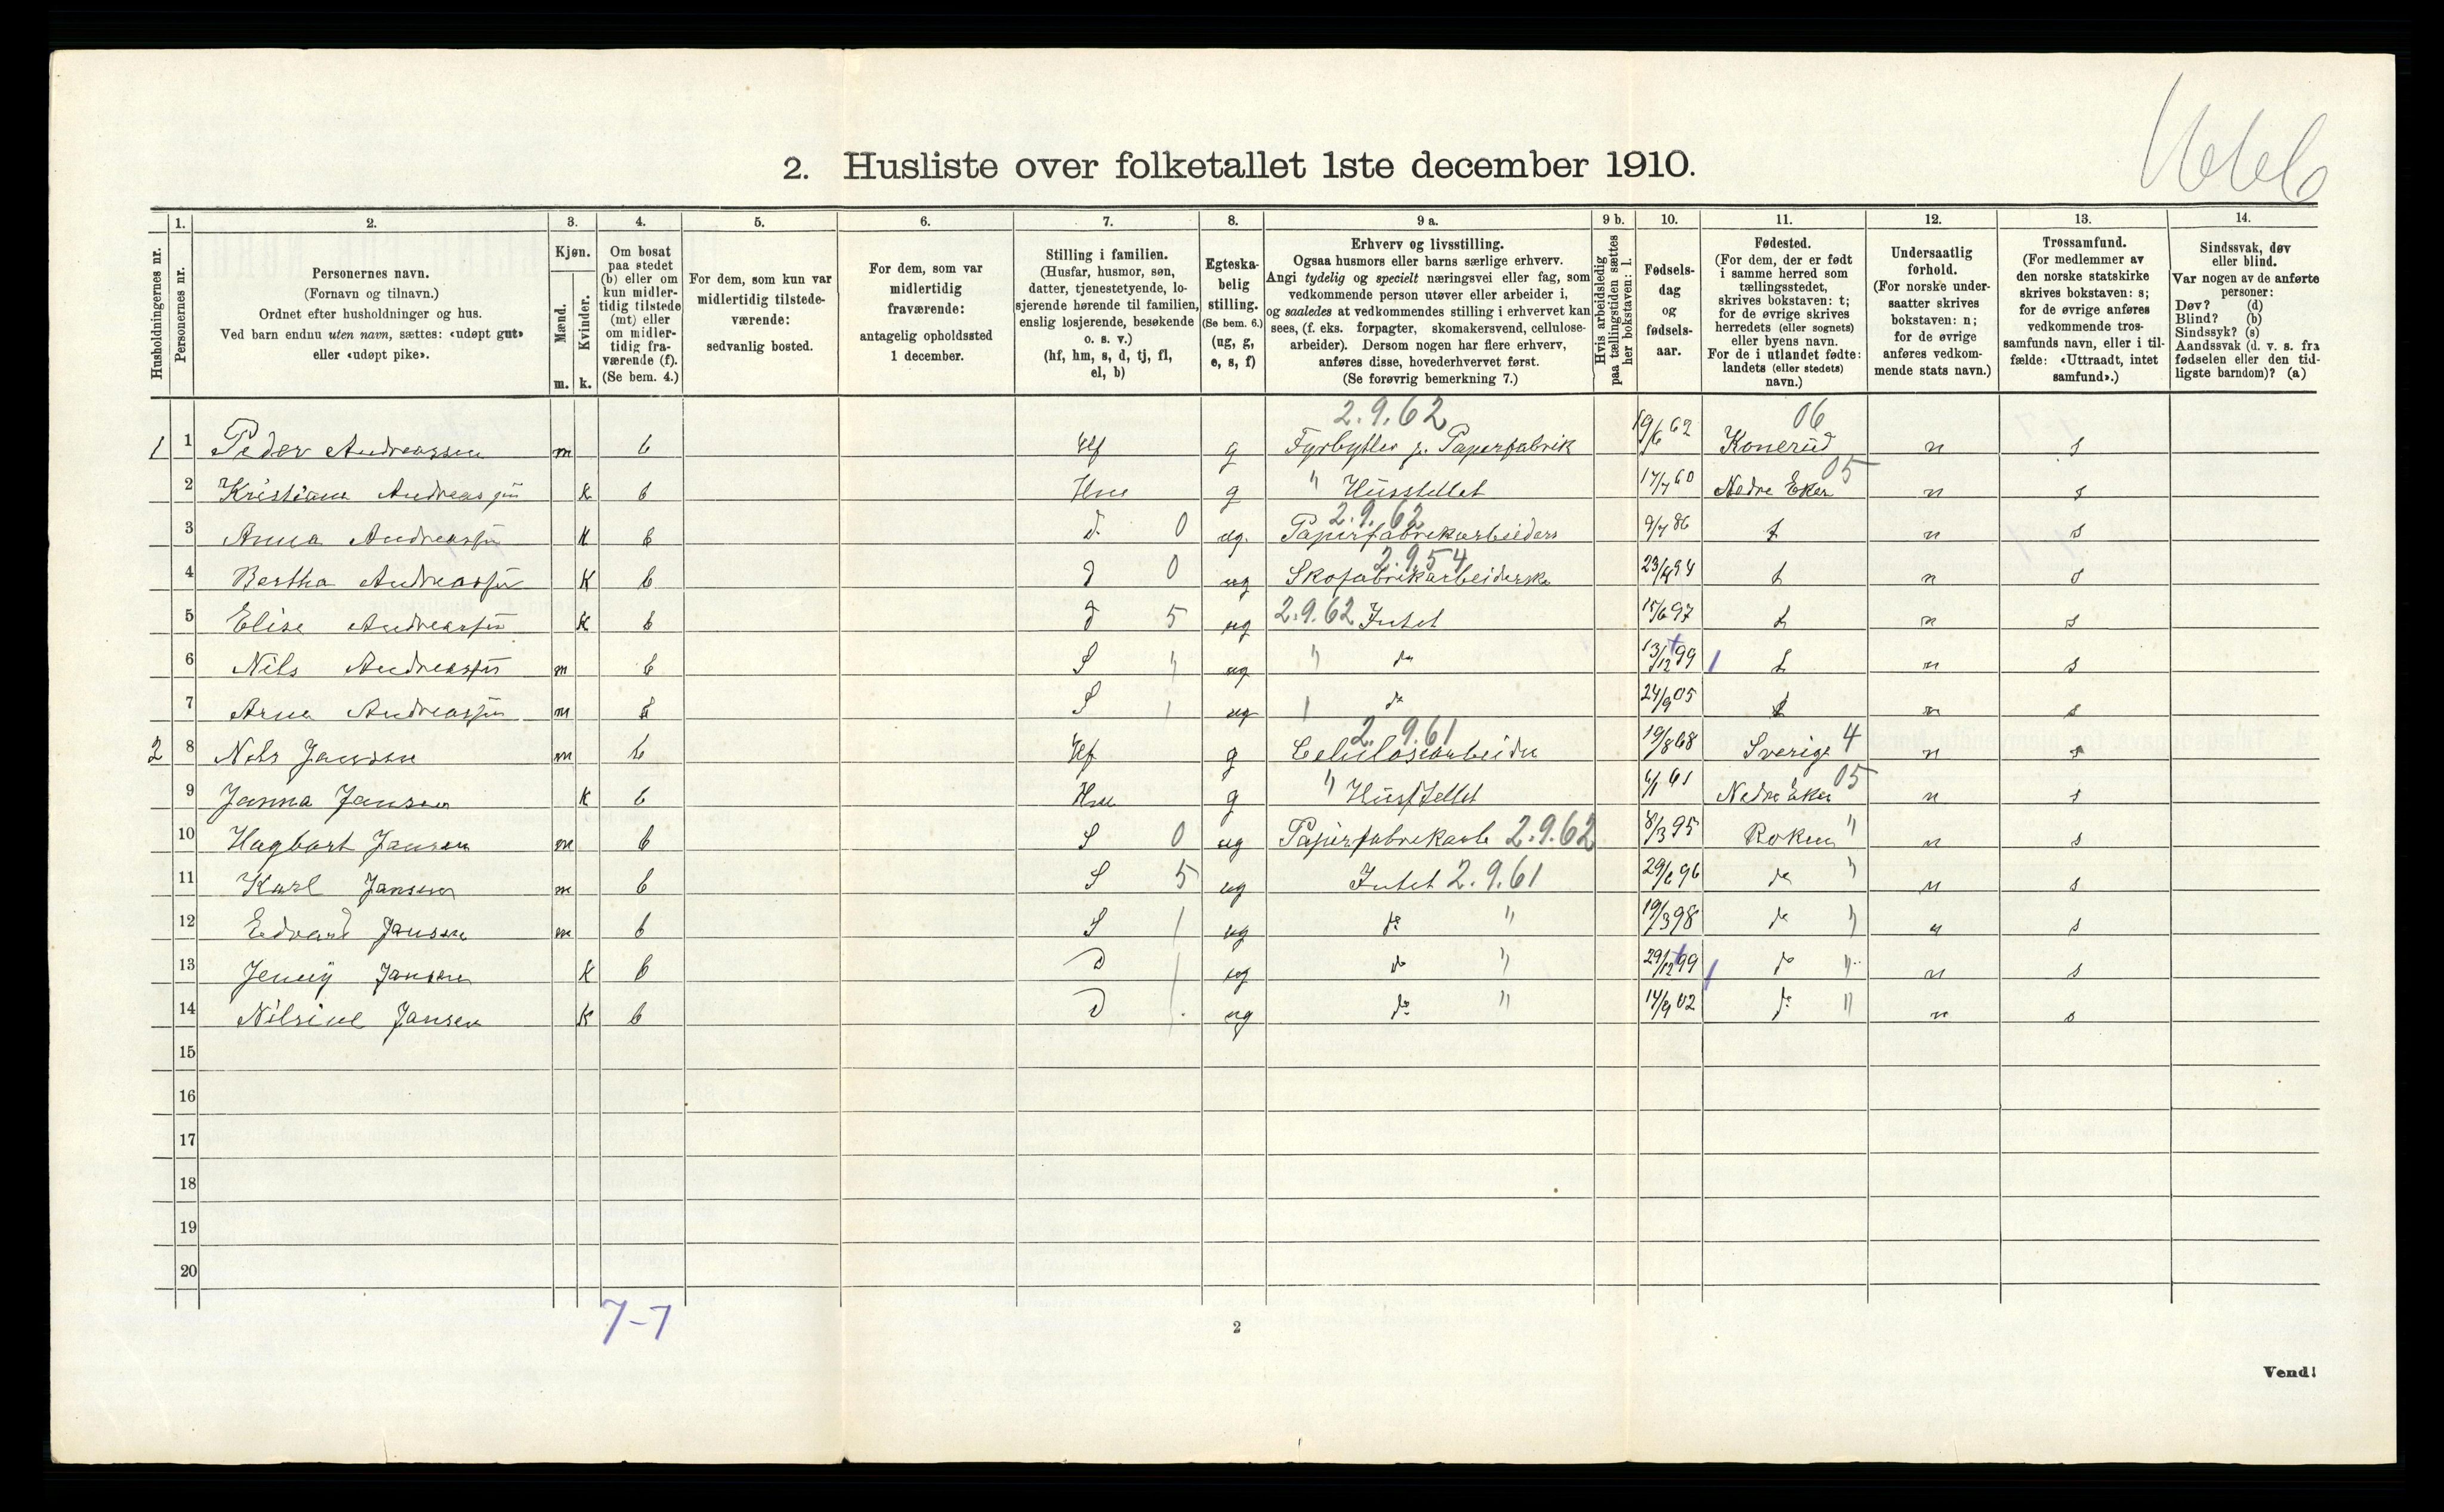 2. Husliste over folketallet 1ste december 1910.
Husholdningernes nr.
1.
Personernes nr.
2.
Personernes navn.
(Fornavn og tilnavn.)
Ordnet efter husholdninger og hus.
Ved barn endnu uten navn, sættes: «udøpt gut»
eller «udøpt pike».
3.
Kjøn.
Mænd.
Kvinder.
m. k.
4.
Om bosat
paa stedet
(b) eller om
kun midler-
tidig tilstede
(mt) eller
om midler-
tidig fra-
værende (f).
(Se bem. 4.)
5.
For dem, som kun var
midlertidig tilstede-
værende:
sedvanlig bosted.
6.
For dem, som var
midlertidig
fraværende:
antagelig opholdssted
1 december.
7.
Stilling i familien.
(Husfar, husmor, søn,
datter, tjenestetyende, lo-
sjerende hørende til familien,
enslig losjerende, besøkende
o. s. v.)
(hf, hm, s, d, tj, fl,
el, b)
8.
Egteska-
belig
stilling.
(Se bem. 6.)
(ug, g,
e, s, f)
9 a.
Erhverv og livsstilling.
Ogsaa husmors eller barns særlige erhverv.
Angi tydelig og specielt næringsvei eller fag, som
vedkommende person utøver eller arbeider i,
og saaledes at vedkommendes stilling i erhvervet kan
sees, (f. eks. forpagter, skomakersvend, cellulose-
arbeider). Dersom nogen har flere erhverv,
anføres disse, hovederhvervet først.
(Se forøvrig bemerkning 7.)
9 b.
Hvis arbeidsledig
paa tællingstiden sættes
her bokstaven: l.
10.
Fødsels-
dag
og
fødsels-
aar.
11.
Fødested.
(For dem, der er født
i samme herred som
tællingsstedet,
skrives bokstaven: t;
for de øvrige skrives
herredets (eller sognets)
eller byens navn.
For de i utlandet fødte:
landets (eller stedets)
navn.)
12.
Undersaatlig
forhold.
(For norske under-
saatter skrives
bokstaven: n;
for de øvrige
anføres vedkom-
mende stats navn.)
13.
Trossamfund.
(For medlemmer av
den norske statskirke
skrives bokstaven: s;
for de øvrige anføres
vedkommende tros-
samfunds navn, eller i til-
fælde: «Uttraadt, intet
samfund».)
14.
Sindssvak, døv
eller blind.
Var nogen av de anførte
personer:
Døv? (d)
Blind? (b)
Sindssyk? (s)
Aandssvak (d. v. s. fra
fødselen eller den tid-
ligste barndom)? (a)
2.9.62 06
1 1 Peder Andreassen m b Hf g Fyrbytter p. Papirfabrik 19/6 62 Konerud n s
05
2 Kristiane Andreassen k b Hm g " Husstellet 17/7 60 Nedre Eker n s
2.9.62
3 Anna Andreassen k b d. 0 ug. Papirfabrikarbeiders 9/7 86 t n s
2.9.54
4 Bertha Andreassen k b d 0 ug Skofabrikarbeiderske 23/8 94 t n s
5 Elise Andreassen k b d 5 ug 2.9.62 Intet 15/6 97 t n s
6 Nils Andreassen m b S " ug " do 13/12 99 t n s
7 Arne Andreassen m b S ug do 24/9 05 t n s
2.9.61
2 8 Nels Jansen m b Hf g Celulosearbeider 19/8 68 Sverige 4 n s
9 Janna Jansen k b Hm g " Husstellet 6/1 61 Nedre Eker 05 n s
10 Hagbart Jansen m b S 0 ug Papirfabrikarb 2.9.62 8/3 95 Røken " n s
11 Karl Jansen m b S 5 ug Intet 2.9.61 29/6 96 do " n s
12 Edvard Jansen m b S ug do " 19/3 98 do " n s
13 Jenny Jansen k b D ug do " 29/12 99 do " n s
14 Nilsine Jansen k b D ug do " 14/9 02 do " n s
15
16
17
18
19
20
7-7
2
Vend!